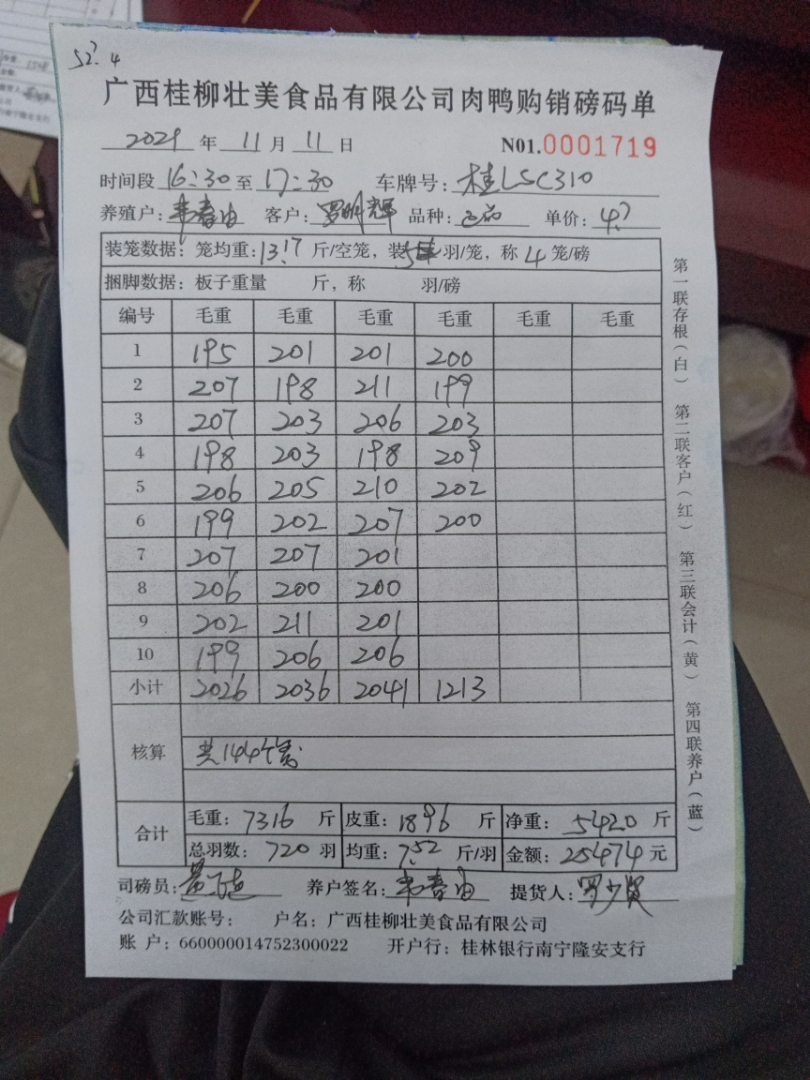 52? 4
广西桂柳壮美食品有限公司肉鸭购销磅码单
2021 年 11 月 11 日 N01.0001719
时间段 16:30 至 17:30 车牌号: 桂LSC310
养殖户: 韦春由 客户: 罗明辉 品种: 正品 单价: 4.7
装笼数据: 笼均重: 13.17 斤/空笼, 装 5 羽/笼, 称 4 笼/磅
捆脚数据: 板子重量 斤, 称 羽/磅
编号 毛重 毛重 毛重 毛重 毛重 毛重
1 195 201 201 200
2 207 198 211 199
3 207 203 206 203
4 198 203 198 209
5 206 205 210 202
6 199 202 207 200
7 207 207 201
8 206 200 200
9 202 211 201
10 199 206 206
小计 2026 2036 2041 1213
核算 共144个笼
合计 毛重: 7316 斤 皮重: 1896 斤 净重: 5420 斤
总羽数: 720 羽 均重: 7.52 斤/羽 金额: 25474 元
司磅员: 养户签名: 韦春由 提货人: 罗少贤
公司汇款账号: 户名: 广西桂柳壮美食品有限公司
账 户: 660000014752300022 开户行: 桂林银行南宁隆安支行
第一联存根(白) 第二联客户(红) 第三联会计(黄) 第四联养户(蓝)